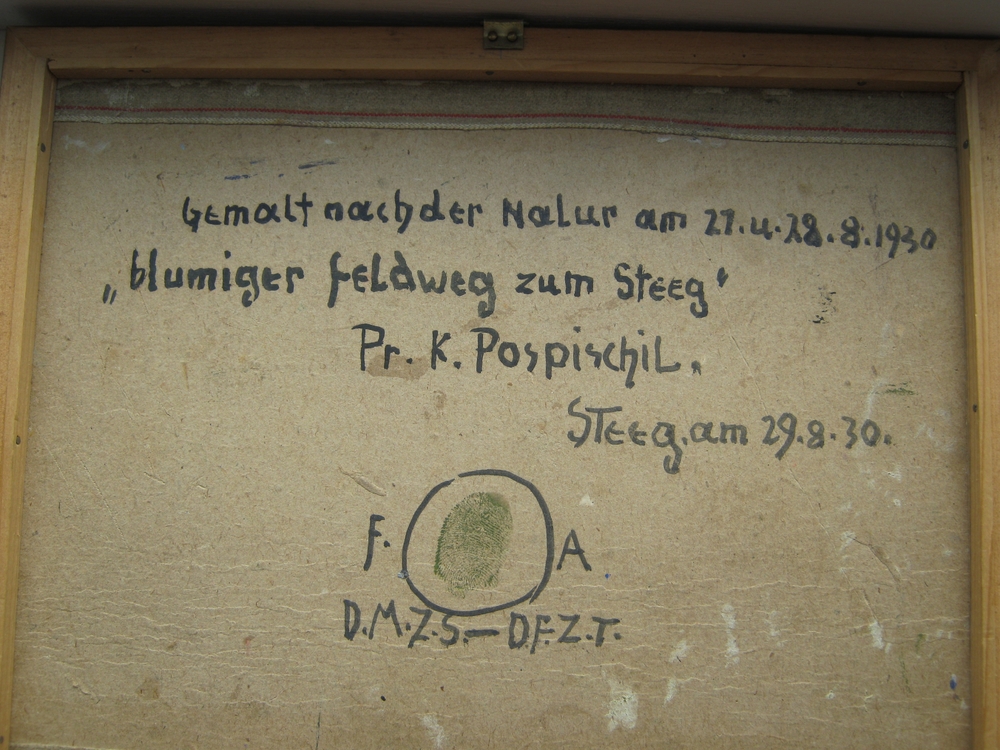 Gemalt nach der Natur am 27. u. 28. 8. 1930
„blumiger Feldweg zum Steeg“
Pr. K. Pospischil.
Steeg. am 29. 8. 30.
F. A
D. M. Z. S. — D. F. Z. T.